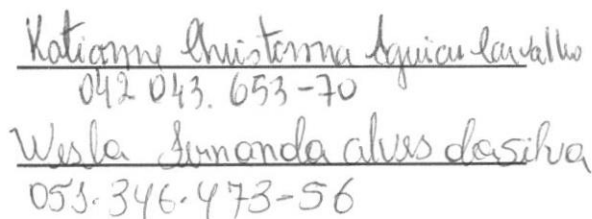 Katianny Christinna Aguiar Carvalho
042 043. 653-70
Wesla Fernanda alves dasilva
051.346.473-56